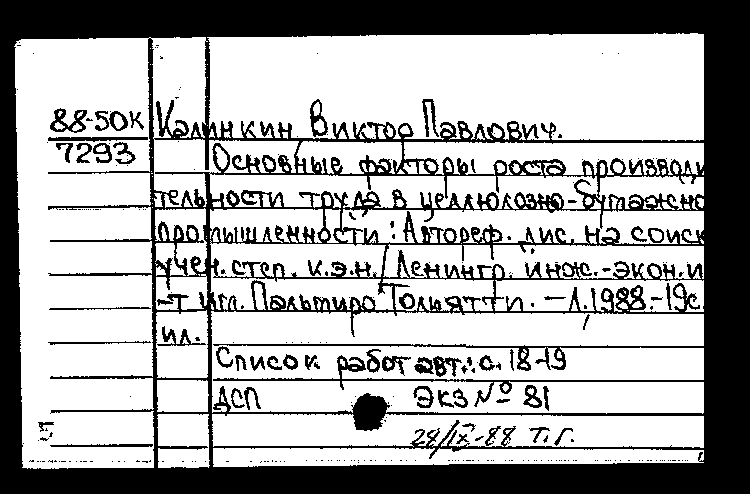 88-50К Калинкин, Виктор Павлович.
7293 Основные факторы роста производи
тельности труда в целлюлозно-бумажно
промышленности : Автореф. дис. на соиск
учен. степ. к.э.н. / Ленингр. инж.-экон. и
-т им. Пальмиро Тольятти. - Л., 1988. - 19с.
ил.
Список работ авт.: с. 18-19
ДСП Экз № 81
28/IX-88 т. г.